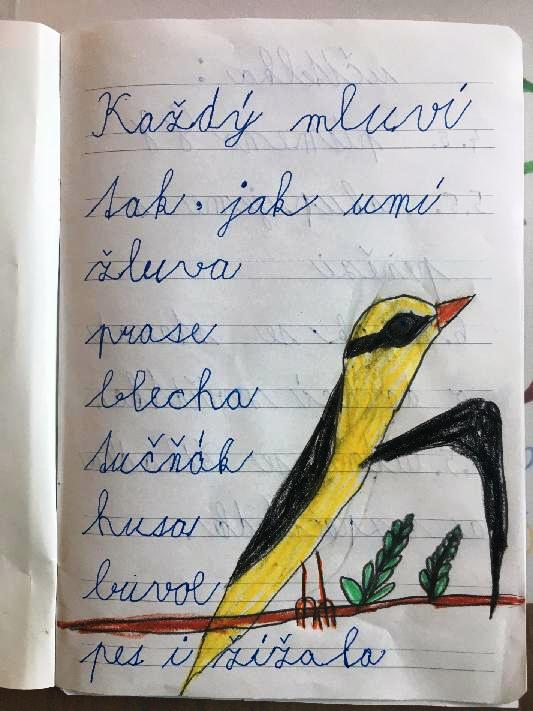 Každý mluví
tak, jak umí
žluva
prase
blecha
tučňák
husa
buvol
pes i žížala